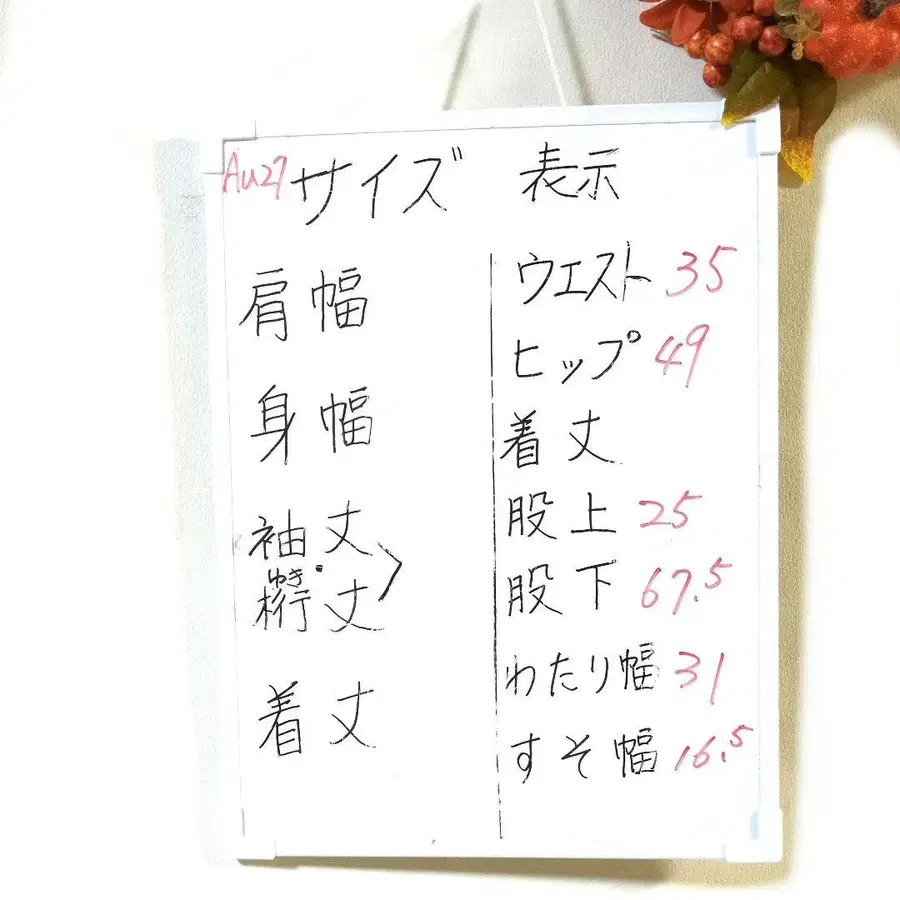 Au27 サイズ 表示
肩幅
身幅
袖丈
ゆき
裄丈
着丈
ウエスト 35
ヒップ 49
着丈
股上 25
股下 67.5
わたり幅 31
すそ幅 16.5